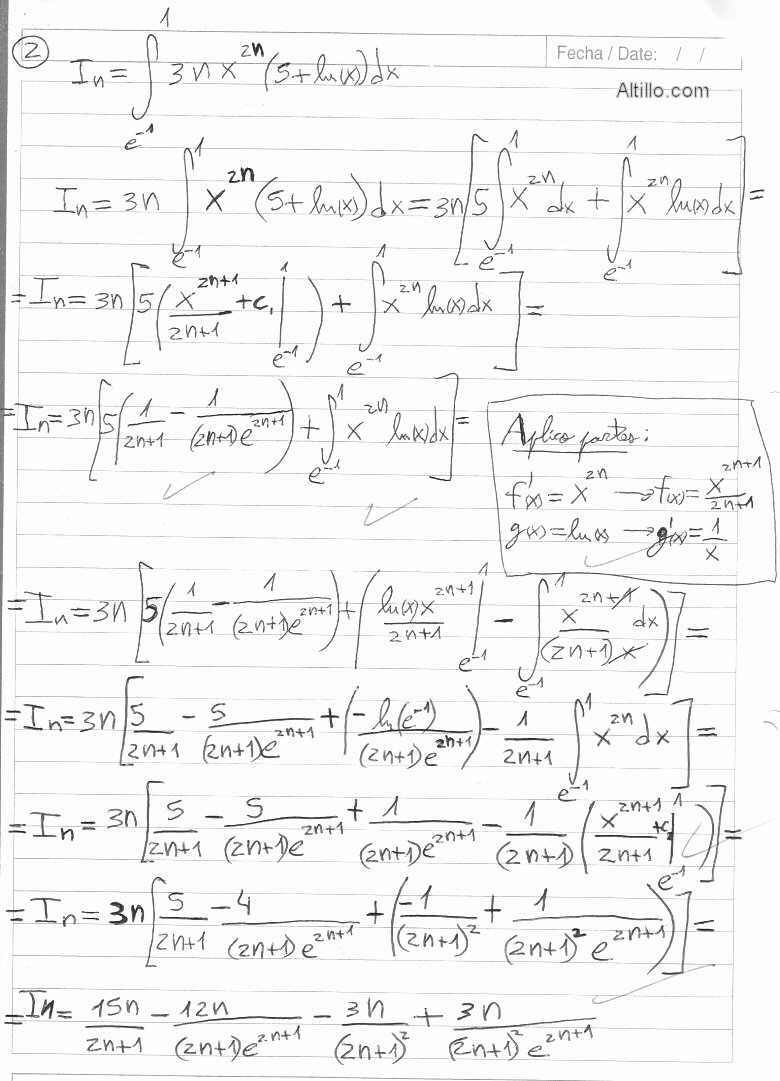 ② Iₙ = ∫_{e⁻¹}^{1} 3n x^{2n} (5 + ln(x)) dx
Fecha / Date: / /
Altillo.com
Iₙ = 3n ∫_{e⁻¹}^{1} x^{2n} (5 + ln(x)) dx = 3n [5 ∫_{e⁻¹}^{1} x^{2n} dx + ∫_{e⁻¹}^{1} x^{2n} ln(x) dx] =
= Iₙ = 3n [5 (x^{2n+1}/(2n+1) + C₁ |_{e⁻¹}^{1}) + ∫_{e⁻¹}^{1} x^{2n} ln(x) dx] =
= Iₙ = 3n [5 (1/(2n+1) - 1/((2n+1)e^{2n+1})) + ∫_{e⁻¹}^{1} x^{2n} ln(x) dx] =
Aplico partes:
f'(x) = x^{2n} → f(x) = x^{2n+1}/(2n+1)
g(x) = ln(x) → g'(x) = 1/x
= Iₙ = 3n [5 (1/(2n+1) - 1/((2n+1)e^{2n+1})) + (ln(x) x^{2n+1}/(2n+1) |_{e⁻¹}^{1} - ∫_{e⁻¹}^{1} x^{2n+1}/((2n+1) x) dx)] =
= Iₙ = 3n [5/(2n+1) - 5/((2n+1)e^{2n+1}) + (-ln(e⁻¹)/((2n+1)e^{2n+1})) - 1/(2n+1) ∫_{e⁻¹}^{1} x^{2n} dx] =
= Iₙ = 3n [5/(2n+1) - 5/((2n+1)e^{2n+1}) + 1/((2n+1)e^{2n+1}) - 1/(2n+1) (x^{2n+1}/(2n+1) + C₂ |_{e⁻¹}^{1})] =
= Iₙ = 3n [5/(2n+1) - 4/((2n+1)e^{2n+1}) + (-1/(2n+1)² + 1/((2n+1)² e^{2n+1}))] =
= Iₙ = 15n/(2n+1) - 12n/((2n+1)e^{2n+1}) - 3n/(2n+1)² + 3n/((2n+1)² e^{2n+1})